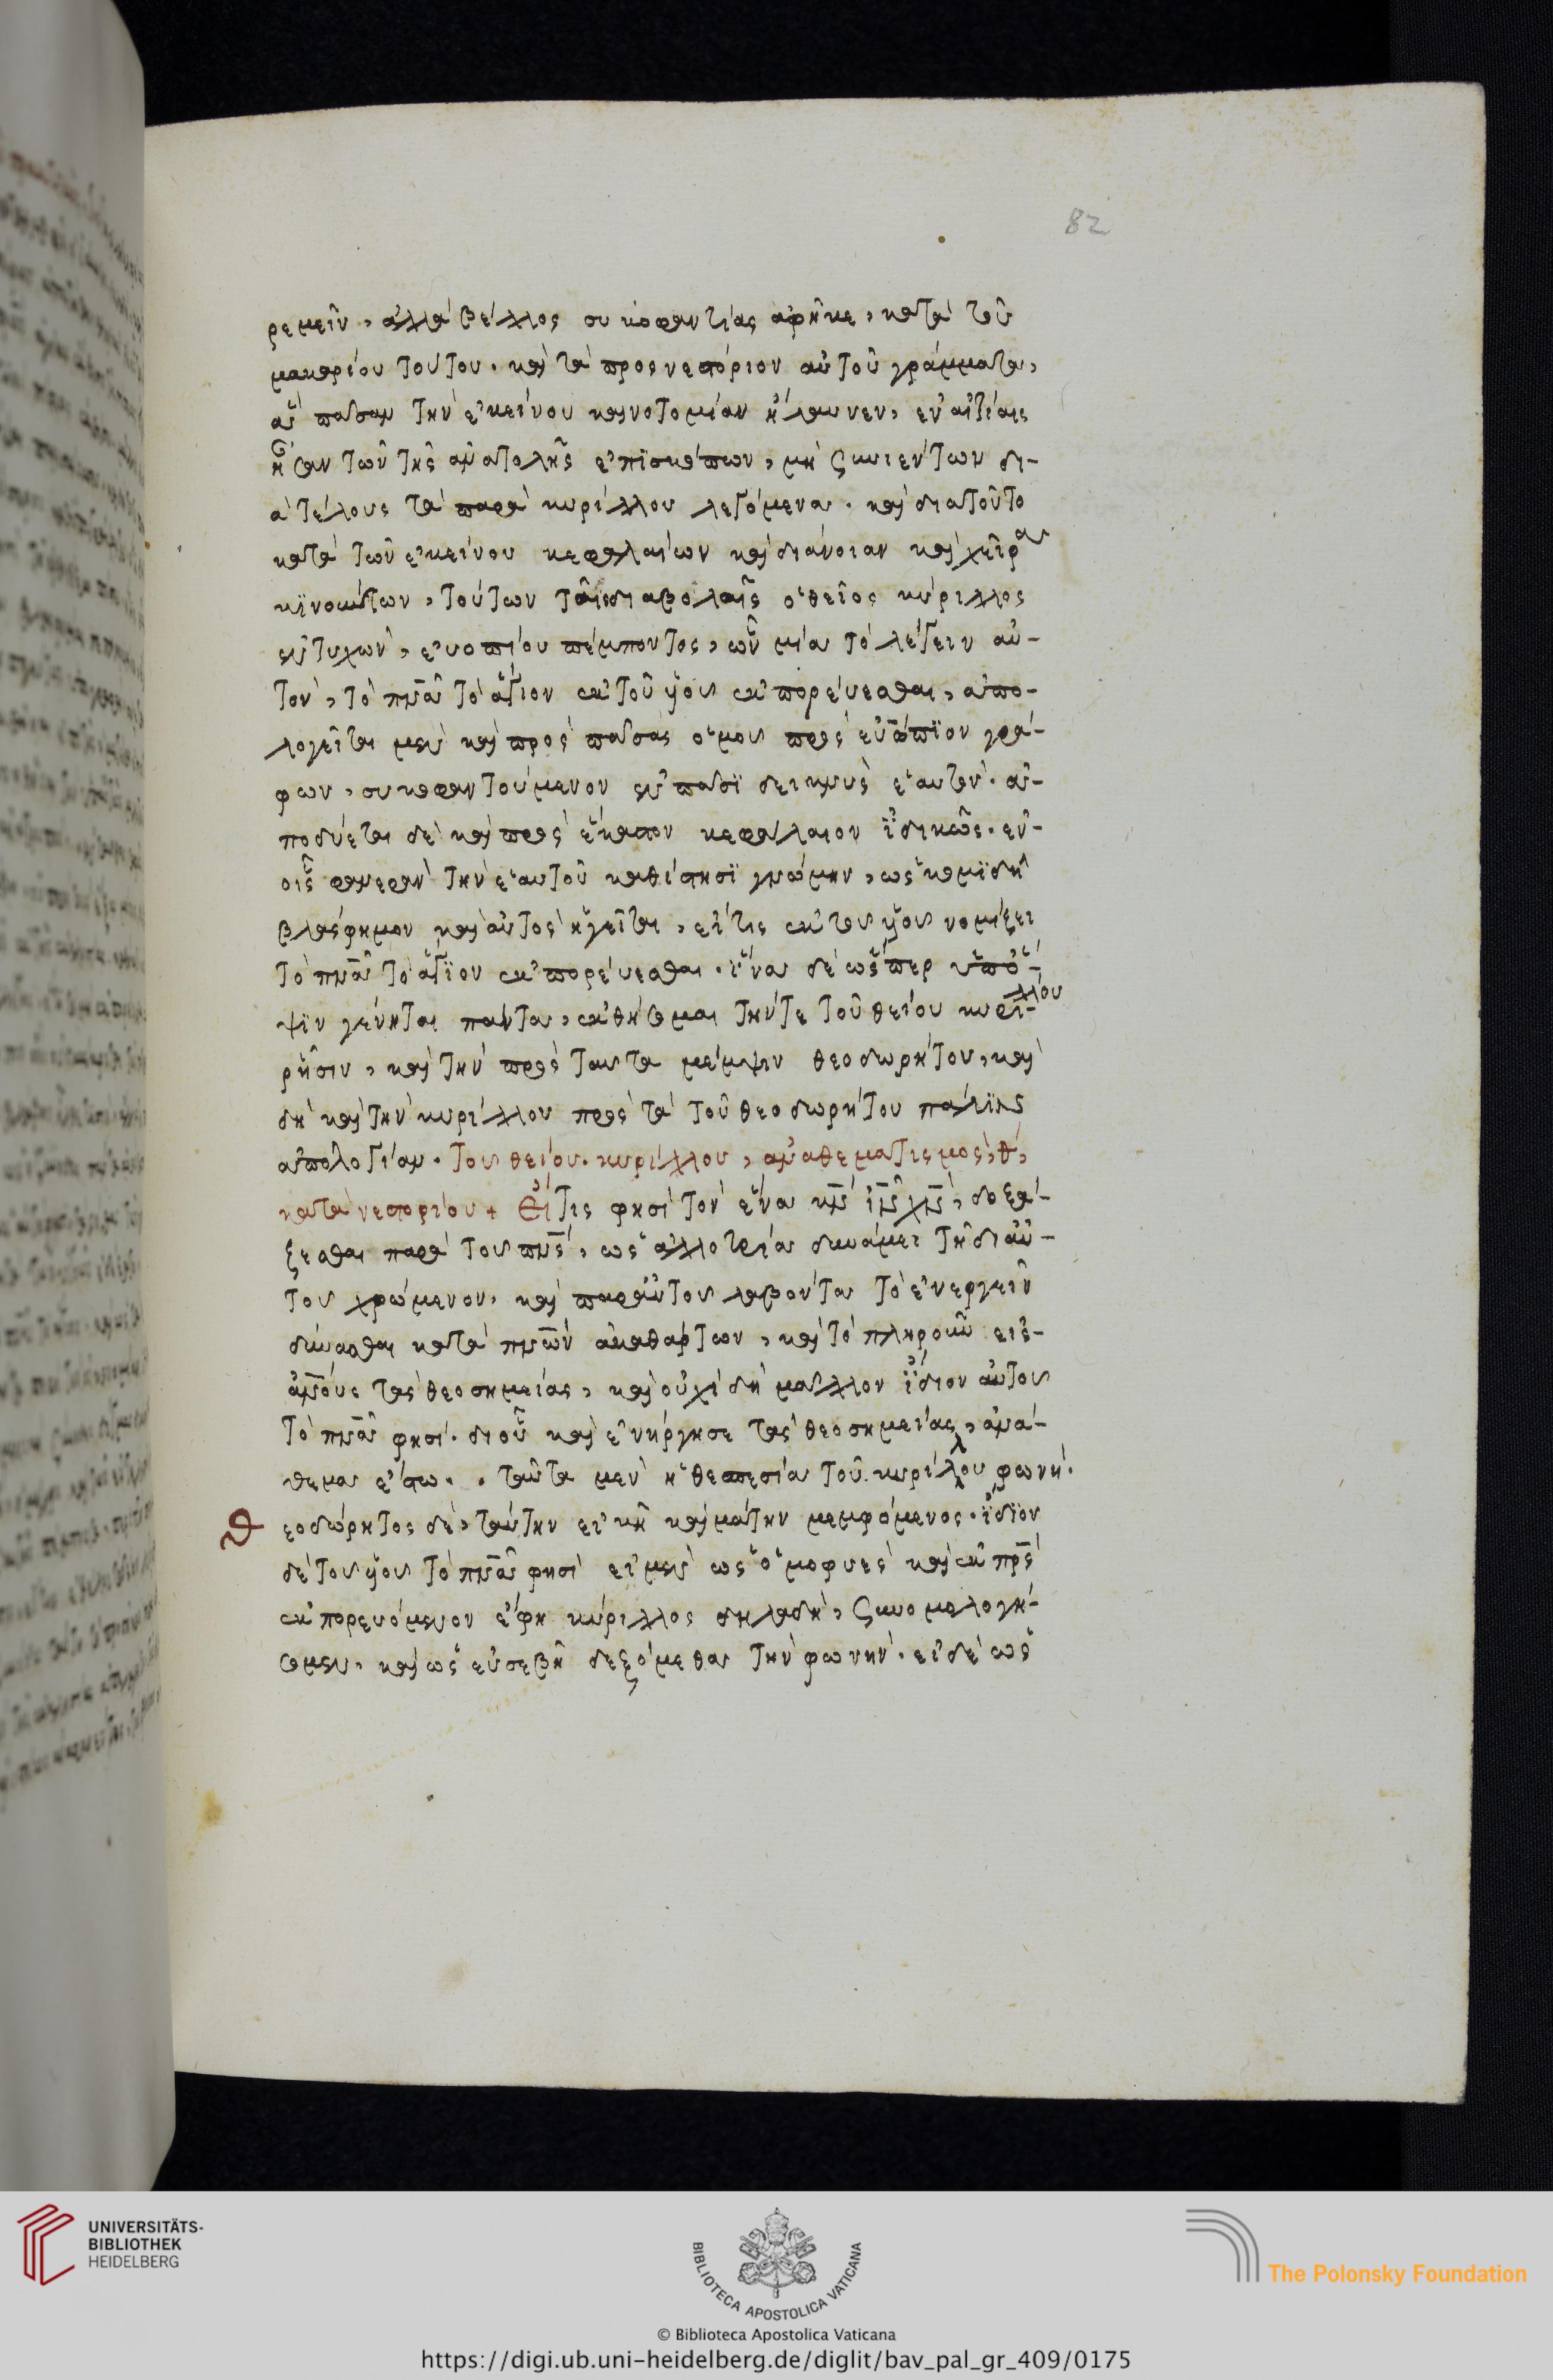 82
ρεμεῖν, ἀλλὰ βέλλος συκοφαντίας ἀφῆκε, κατὰ τοῦ
μακαρίου τούτου. καὶ τὰ προς νεστόριον αὐτοῦ γράμματα,
ἃ πᾶσαν τὴν ἐκείνου καινοτομίαν ἤλαυνεν, ἐν αἰτίαις
ἦσαν τῶν τῆς ἀνατολῆς ἐπϊσκόπων, μὴ συνιέντων δι-
ὰ τέλους τὰ παρὰ κυρίλλου λεγόμενα. καὶ διατοῦτο
κατὰ τῶν ἐκείνου κεφαλαίων καὶ διάνοιαν καὶ χεῖρας
κϊνούντων, τούτων ταῖς διαβολαῖς ὁ θεῖος κύριλλος
ἐντυχὼν, εὐοπτίου πέμποντος, ὧν μία τὸ λέγειν αὐ-
τὸν, τὸ πνᾶ τὸ ἅγιον ἐκ τοῦ υἱοῦ ἐκπορέυεσθαι, ἀπο-
λογεῖται μὲν καὶ πρὸς πάσας ὁμοῦ πρὸς εὐόπτϊον γρά-
φων, συκοφαντούμενον ἐν πᾶσϊ δεικνὺς ἑαυτὸν. ἀ-
ποδύεται δὲ καὶ πρὸς ἕκαστον κεφάλαιον ϊδικῶς. ἐν
οἷς φανερὰν τὴν ἑαυτοῦ καθίστησϊ γνώμην, ὡς κομϊδῆ
βλάσφημον καὶ αὐτὸς ἡγεῖται, εἴ τις ἐκ τοῦ υἱοῦ νομίζει
τὸ πνᾶ τὸ ἅγϊον ἐκπορέυεσθαι. ἵνα δὲ ὥσπερ ὑπ' ὄ-
ψϊν γένηται πάντα, ἐκθήσομαι τήν τε τοῦ θείου κυρίλλου
ρῆσιν, καὶ τὴν πρὸς ταῦτα μέμψιν θεοδωρήτου, καὶ
δὴ καὶ τὴν κυρίλλου πρὸς τὰ τοῦ θεοδωρήτου πάλϊν
ἀπολογίαν. τοῦ θείου κυρίλλου, ἀναθεματισμὸς, θ,
κατὰ νεστορίου + Εἴ τις φησὶ τὸν ἕνα κν ιν χν, δοξά-
ζεσθαι παρὰ τοῦ πνς, ὡς ἀλλοτρία δυνάμει τῆ δι αὐ-
τοῦ χρώμενον, καὶ παρ αὐτοῦ λαβόντα τὸ ἐνεργεῖν
δύνασθαι κατὰ πνων ἀκαθάρτων, καὶ τὸ πληροῦν εἰς
ανους τὰς θεοσημείας, καὶ οὐχὶ δὴ μᾶλλον ἴδιον αὐτοῦ
τὸ πνᾶ φησὶ. δι οὗ καὶ ἐνήργησε τὰς θεοσημείας, ἀνά-
θεμα ἔστω. ταῦτα μὲν ἡ θεσπεσία τοῦ κυρίλλου φωνή.
Θεοδώρητος δὲ, ταύτην εἰκῆ καὶ μάτην μεμφόμενος. ἴδϊον
δὲ τοῦ υἱοῦ τὸ πνᾶ φησὶ εἰ μὲν ὡς ὁμοφυὲς καὶ ἐκ πρς
ἐκπορευόμενον ἔφη κύριλλος δηλαδὴ, συνομολογή-
σομεν, καὶ ὡς εὐσεβῆ δεξόμεθα τὴν φωνὴν. εἰ δὲ ὡς
UNIVERSITÄTS-
BIBLIOTHEK
HEIDELBERG
BIBLIOTECA APOSTOLICA VATICANA
The Polonsky Foundation
© Biblioteca Apostolica Vaticana
https://digi.ub.uni-heidelberg.de/diglit/bav_pal_gr_409/0175